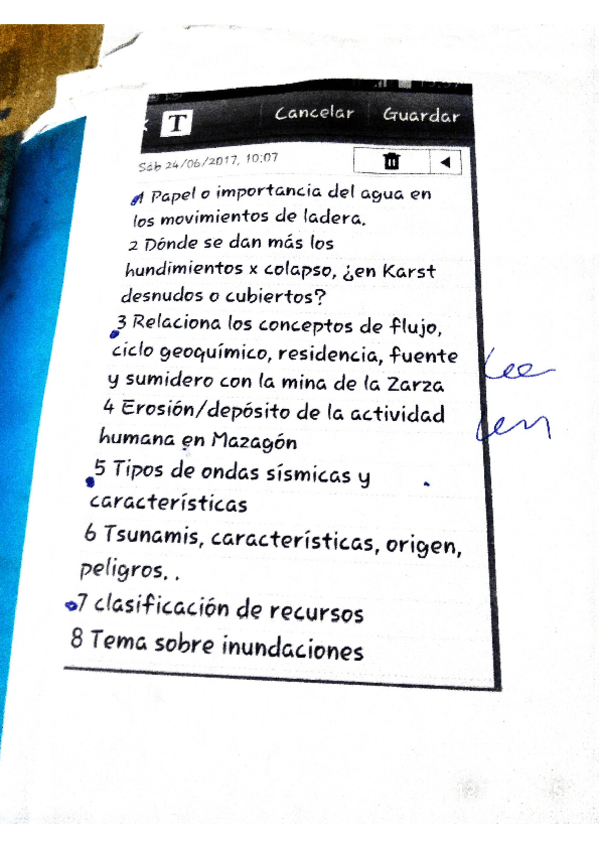 T Cancelar Guardar
Sáb 24/06/2017, 10:07
1 Papel o importancia del agua en
los movimientos de ladera.
2 Dónde se dan más los
hundimientos x colapso, ¿en Karst
desnudos o cubiertos?
3 Relaciona los conceptos de flujo,
ciclo geoquímico, residencia, fuente
y sumidero con la mina de la Zarza
4 Erosión/depósito de la actividad
humana en Mazagón
5 Tipos de ondas sísmicas y
características
6 Tsunamis, características, origen,
peligros. .
7 clasificación de recursos
8 Tema sobre inundaciones